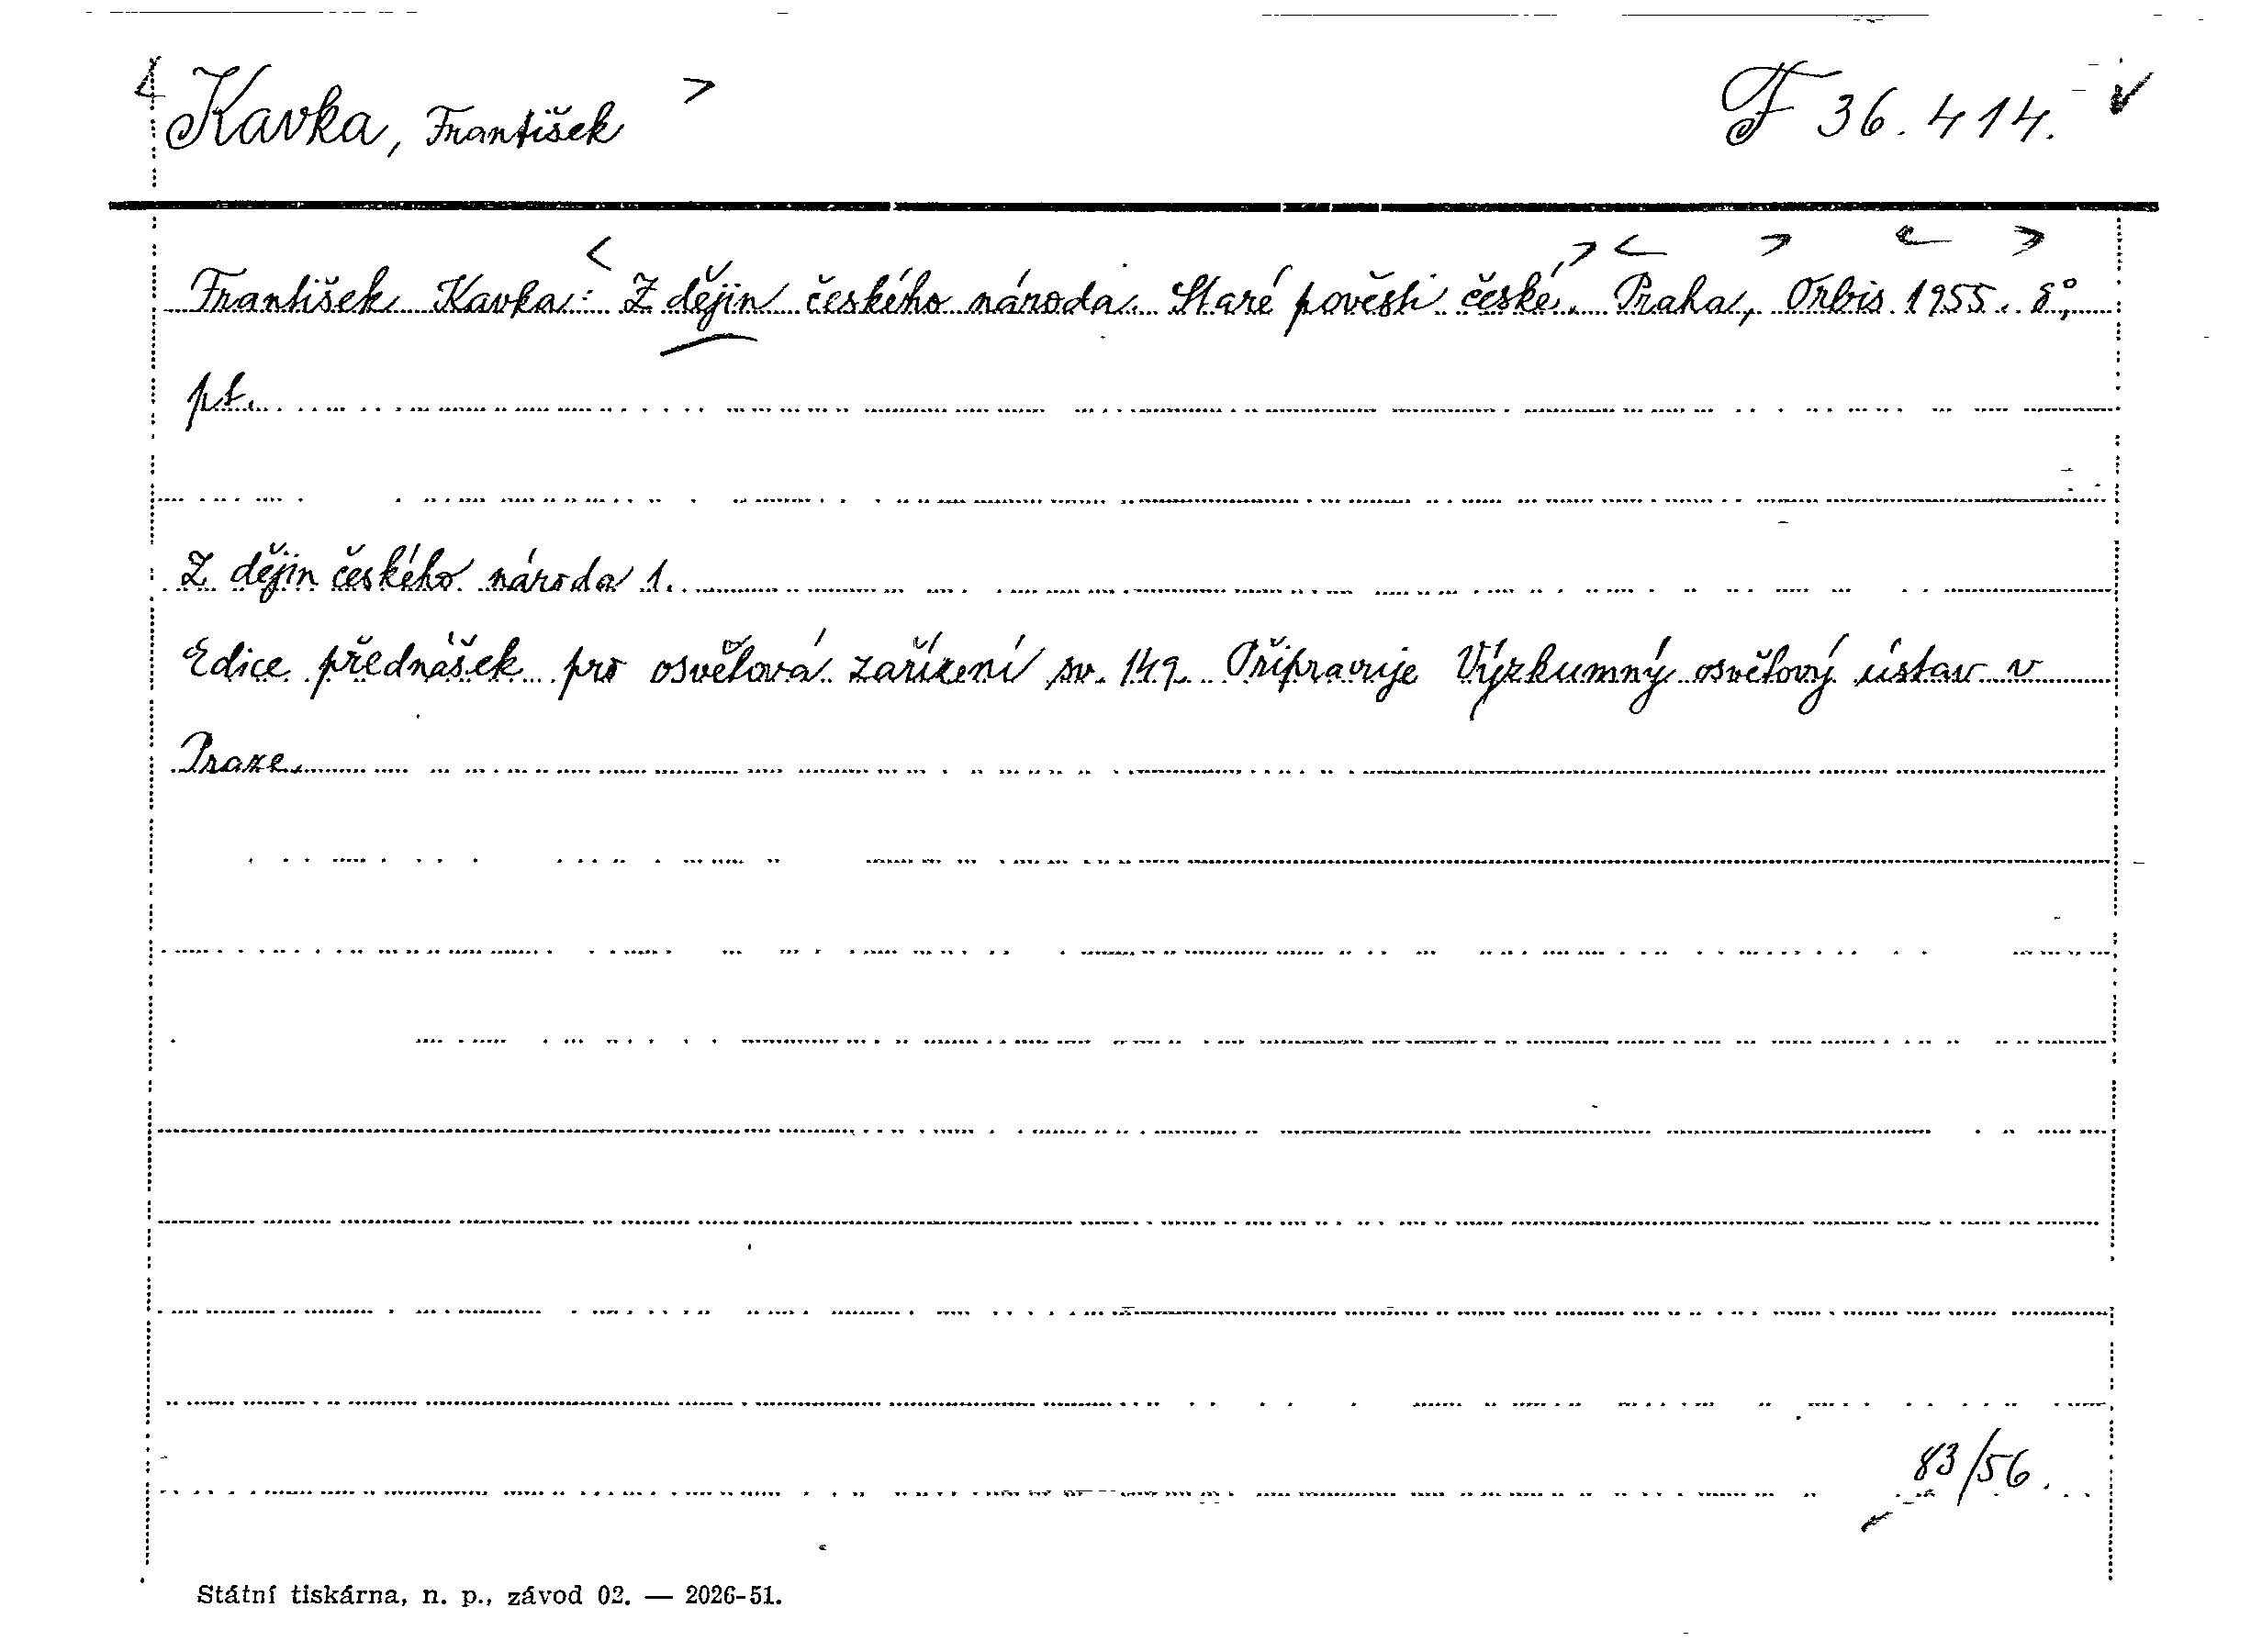 < Kavka, František > F 36.414. ✓
František Kavka: < Z dějin českého národa. Staré pověsti české. > < Praha, > Orbis < 1955. > 8°,
pt.
Z dějin českého národa 1.
Edice přednášek pro osvětová zařízení sv. 149. Připravuje Výzkumný osvětový ústav v
Praze.
83/56.
Státní tiskárna, n. p., závod 02. — 2026-51.